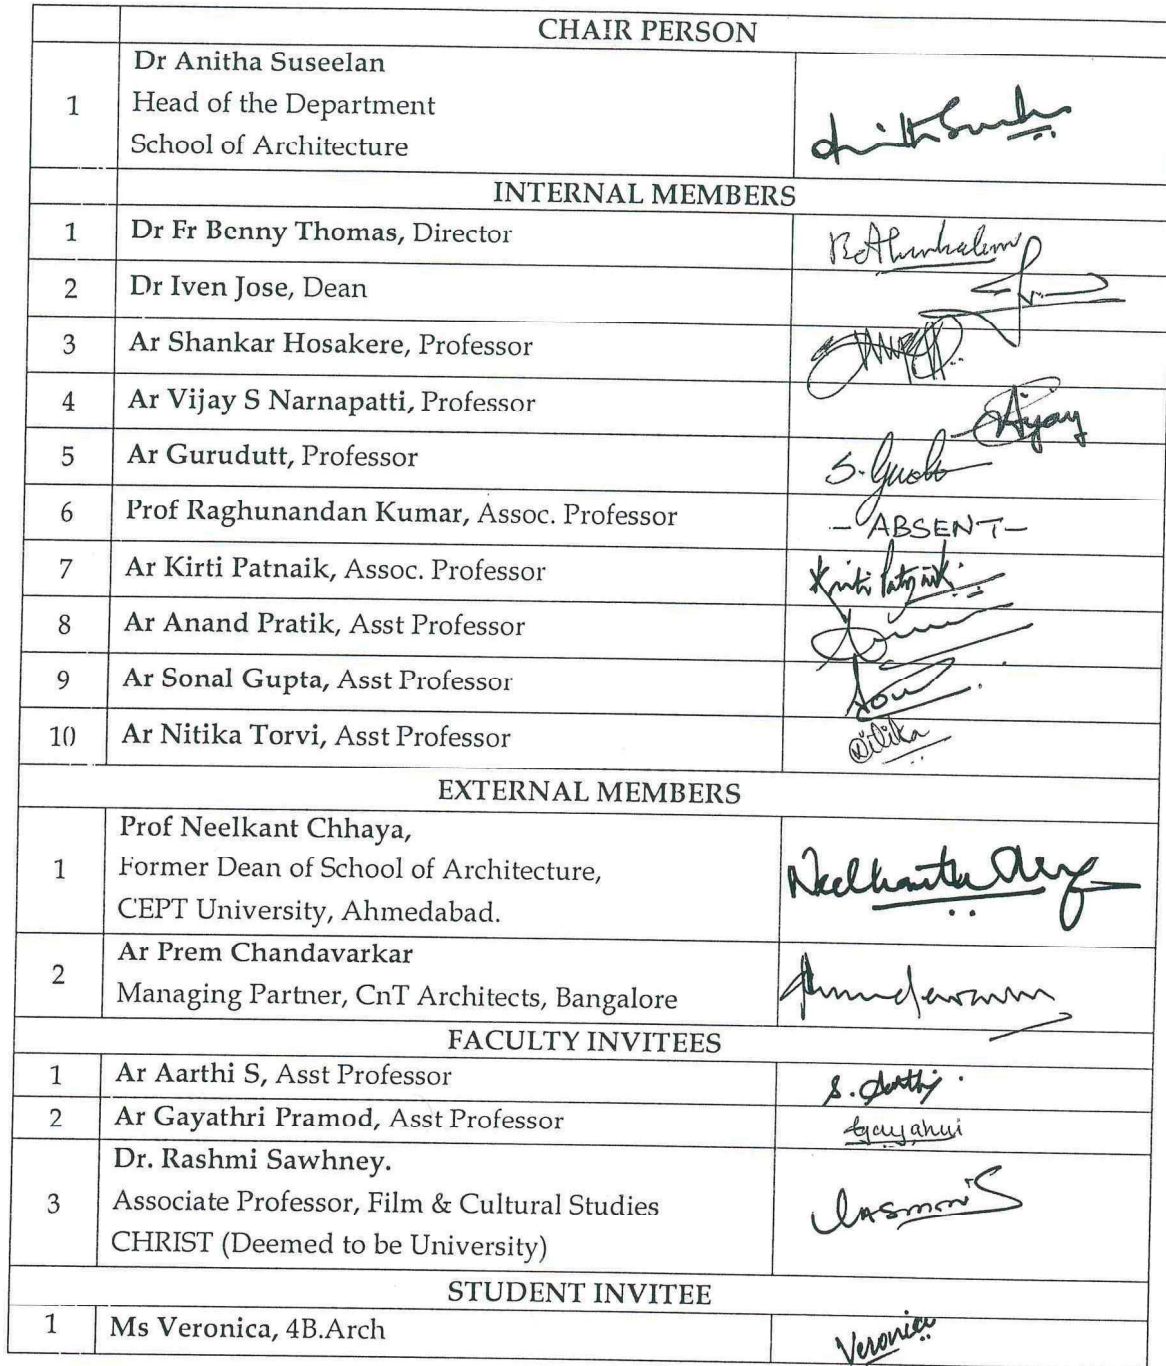 CHAIR PERSON
1
Dr Anitha Suseelan
Head of the Department
School of Architecture
INTERNAL MEMBERS
1 Dr Fr Benny Thomas, Director
2 Dr Iven Jose, Dean
3 Ar Shankar Hosakere, Professor
4 Ar Vijay S Narnapatti, Professor Vijay
5 Ar Gurudutt, Professor
6 Prof Raghunandan Kumar, Assoc. Professor - ABSENT -
7 Ar Kirti Patnaik, Assoc. Professor Kirti Patnaik
8 Ar Anand Pratik, Asst Professor
9 Ar Sonal Gupta, Asst Professor
10 Ar Nitika Torvi, Asst Professor Nitika
EXTERNAL MEMBERS
1
Prof Neelkant Chhaya,
Former Dean of School of Architecture,
CEPT University, Ahmedabad.
2
Ar Prem Chandavarkar
Managing Partner, CnT Architects, Bangalore
FACULTY INVITEES
1 Ar Aarthi S, Asst Professor S. Aarthi
2 Ar Gayathri Pramod, Asst Professor
3
Dr. Rashmi Sawhney.
Associate Professor, Film & Cultural Studies
CHRIST (Deemed to be University)
STUDENT INVITEE
1 Ms Veronica, 4B.Arch Veronica